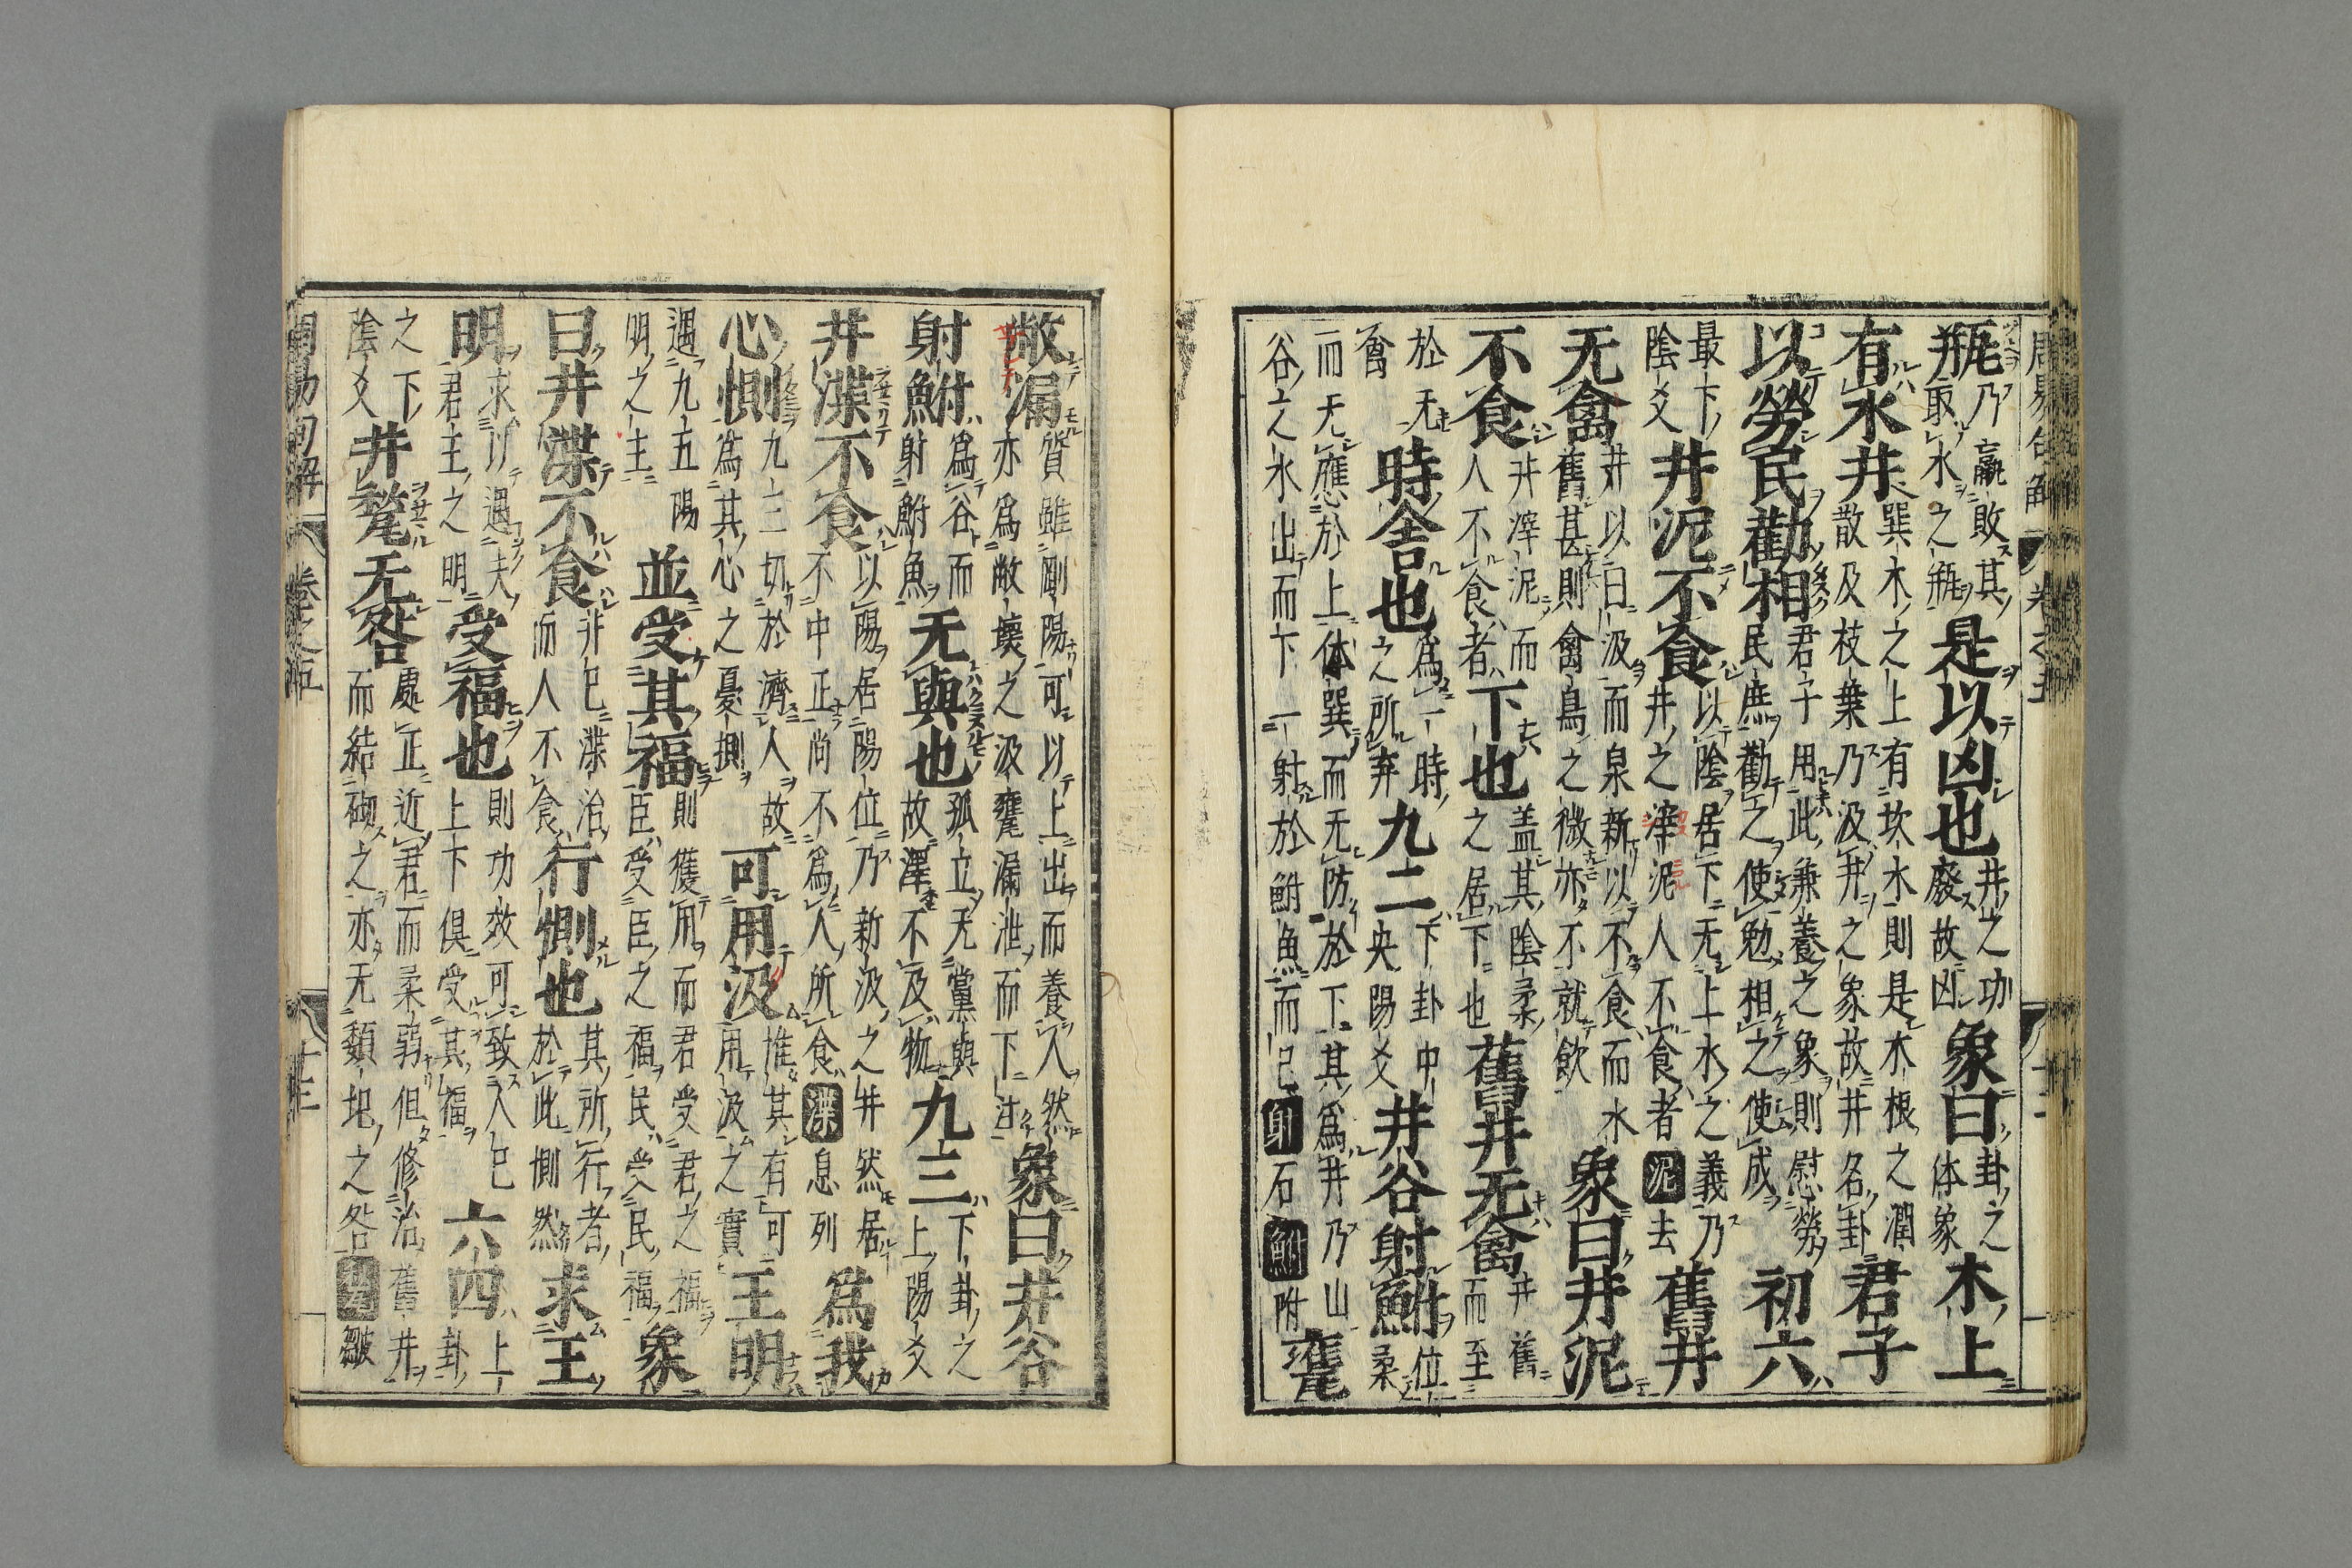 周易句解 卷之五 十二
瓶乃羸敗其取水之瓶是以凶也井之功廢故凶象曰卦之体象木上
有水井巽木之上有坎水則是木根之潤散及枝葉乃汲井之象故井名卦君子
以勞民勸相君子用此兼養之象則慰勞民庶勸之使勉相之使成初六
最下陰爻井泥不食以陰居下无上水之義乃井之滓泥人不食者泥去舊井
无禽井以日汲而泉新以不食而水舊甚則禽鳥之微亦不就飲象曰井泥
不食井滓泥而人不食者下也蓋其陰柔之居下也舊井无禽井舊而至
於无禽時舍也爲一時之所弃九二下卦中央陽爻井谷射鮒位柔
而无應於上体巽而无防於下其爲井乃山谷之水出而下一射於鮒魚而已射石鮒附甕
敝漏質雖剛陽可以上出而養人然亦爲敝壞之汲甕漏泄而下註象曰井谷
射鮒爲谷而射鮒魚无與也孤立无黨與故澤不及物九三下卦之上陽爻
井渫不食以陽居陽位乃新汲之井然居不中正尚不爲人所食渫息列爲我
心惻九三切於濟人故爲其心之憂惻可用汲惟其有可用汲之實王明
遇九五陽明之主並受其福則獲用而君受君之福臣受臣之福民受民福象
曰井渫不食井已渫治而人不食行惻也其所行者於此惻然求王
明求遇夫君主之明受福也則功效可致人已上下俱受其福六四上卦
之下陰爻井甃无咎處正近君而柔弱但修治舊井而結砌之亦无頽圯之咎甃皺
周易句解 卷之五 十三